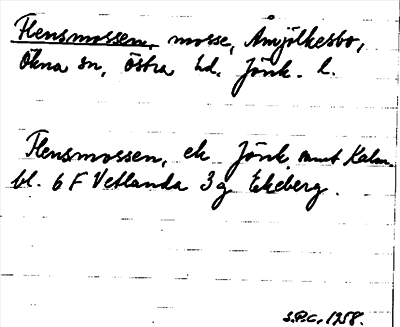 Flensmossen, mosse, Åmjölkesbo,
Ökna sn, Östra hd. Jönk. l.
Flensmossen, ek Jönk, samt Kalm.
bl. 6 F Vetlanda 3g Ekeberg.
S.P.C. 1958.